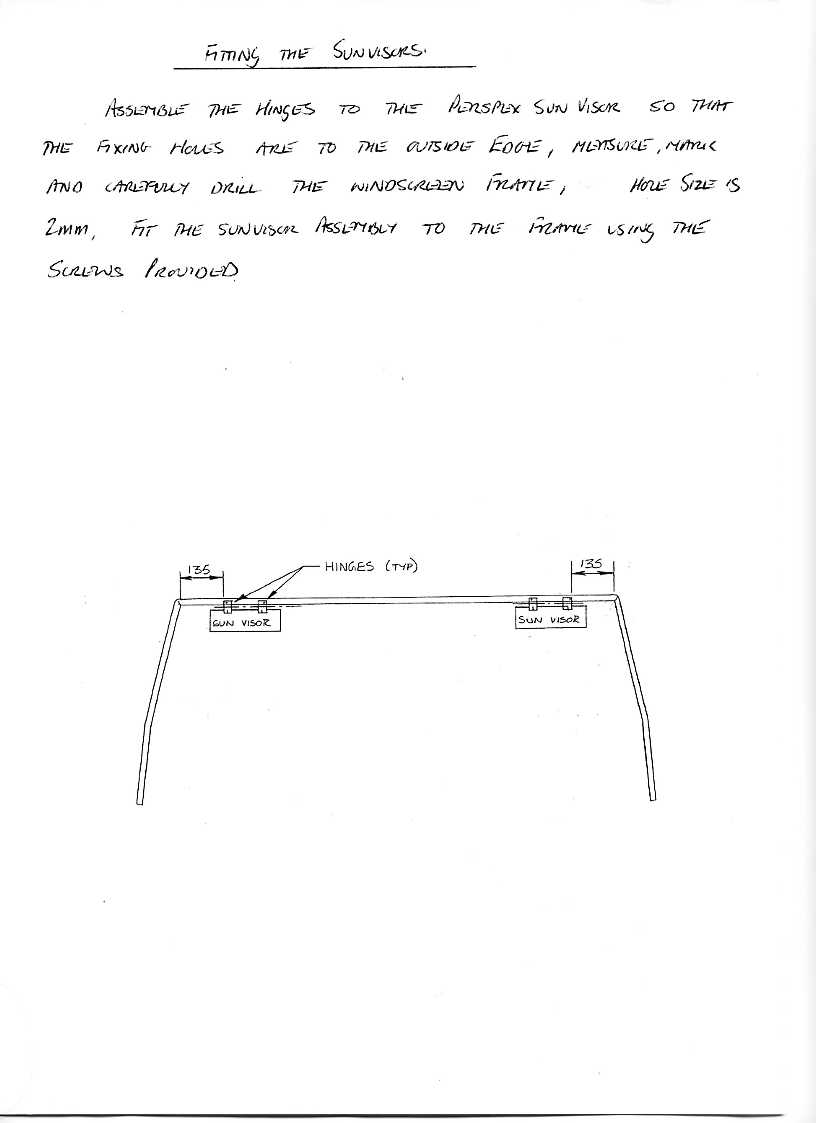 FITTING THE SUNVISORS.
ASSEMBLE THE HINGES TO THE PERSPEX SUN VISOR SO THAT
THE FIXING HOLES ARE TO THE OUTSIDE EDGE, MEASURE, MARK
AND CAREFULLY DRILL THE WINDSCREEN FRAME, HOLE SIZE IS
2mm, FIT THE SUNVISOR ASSEMBLY TO THE FRAME USING THE
SCREWS PROVIDED
135
HINGES (TYP)
135
SUN VISOR
SUN VISOR